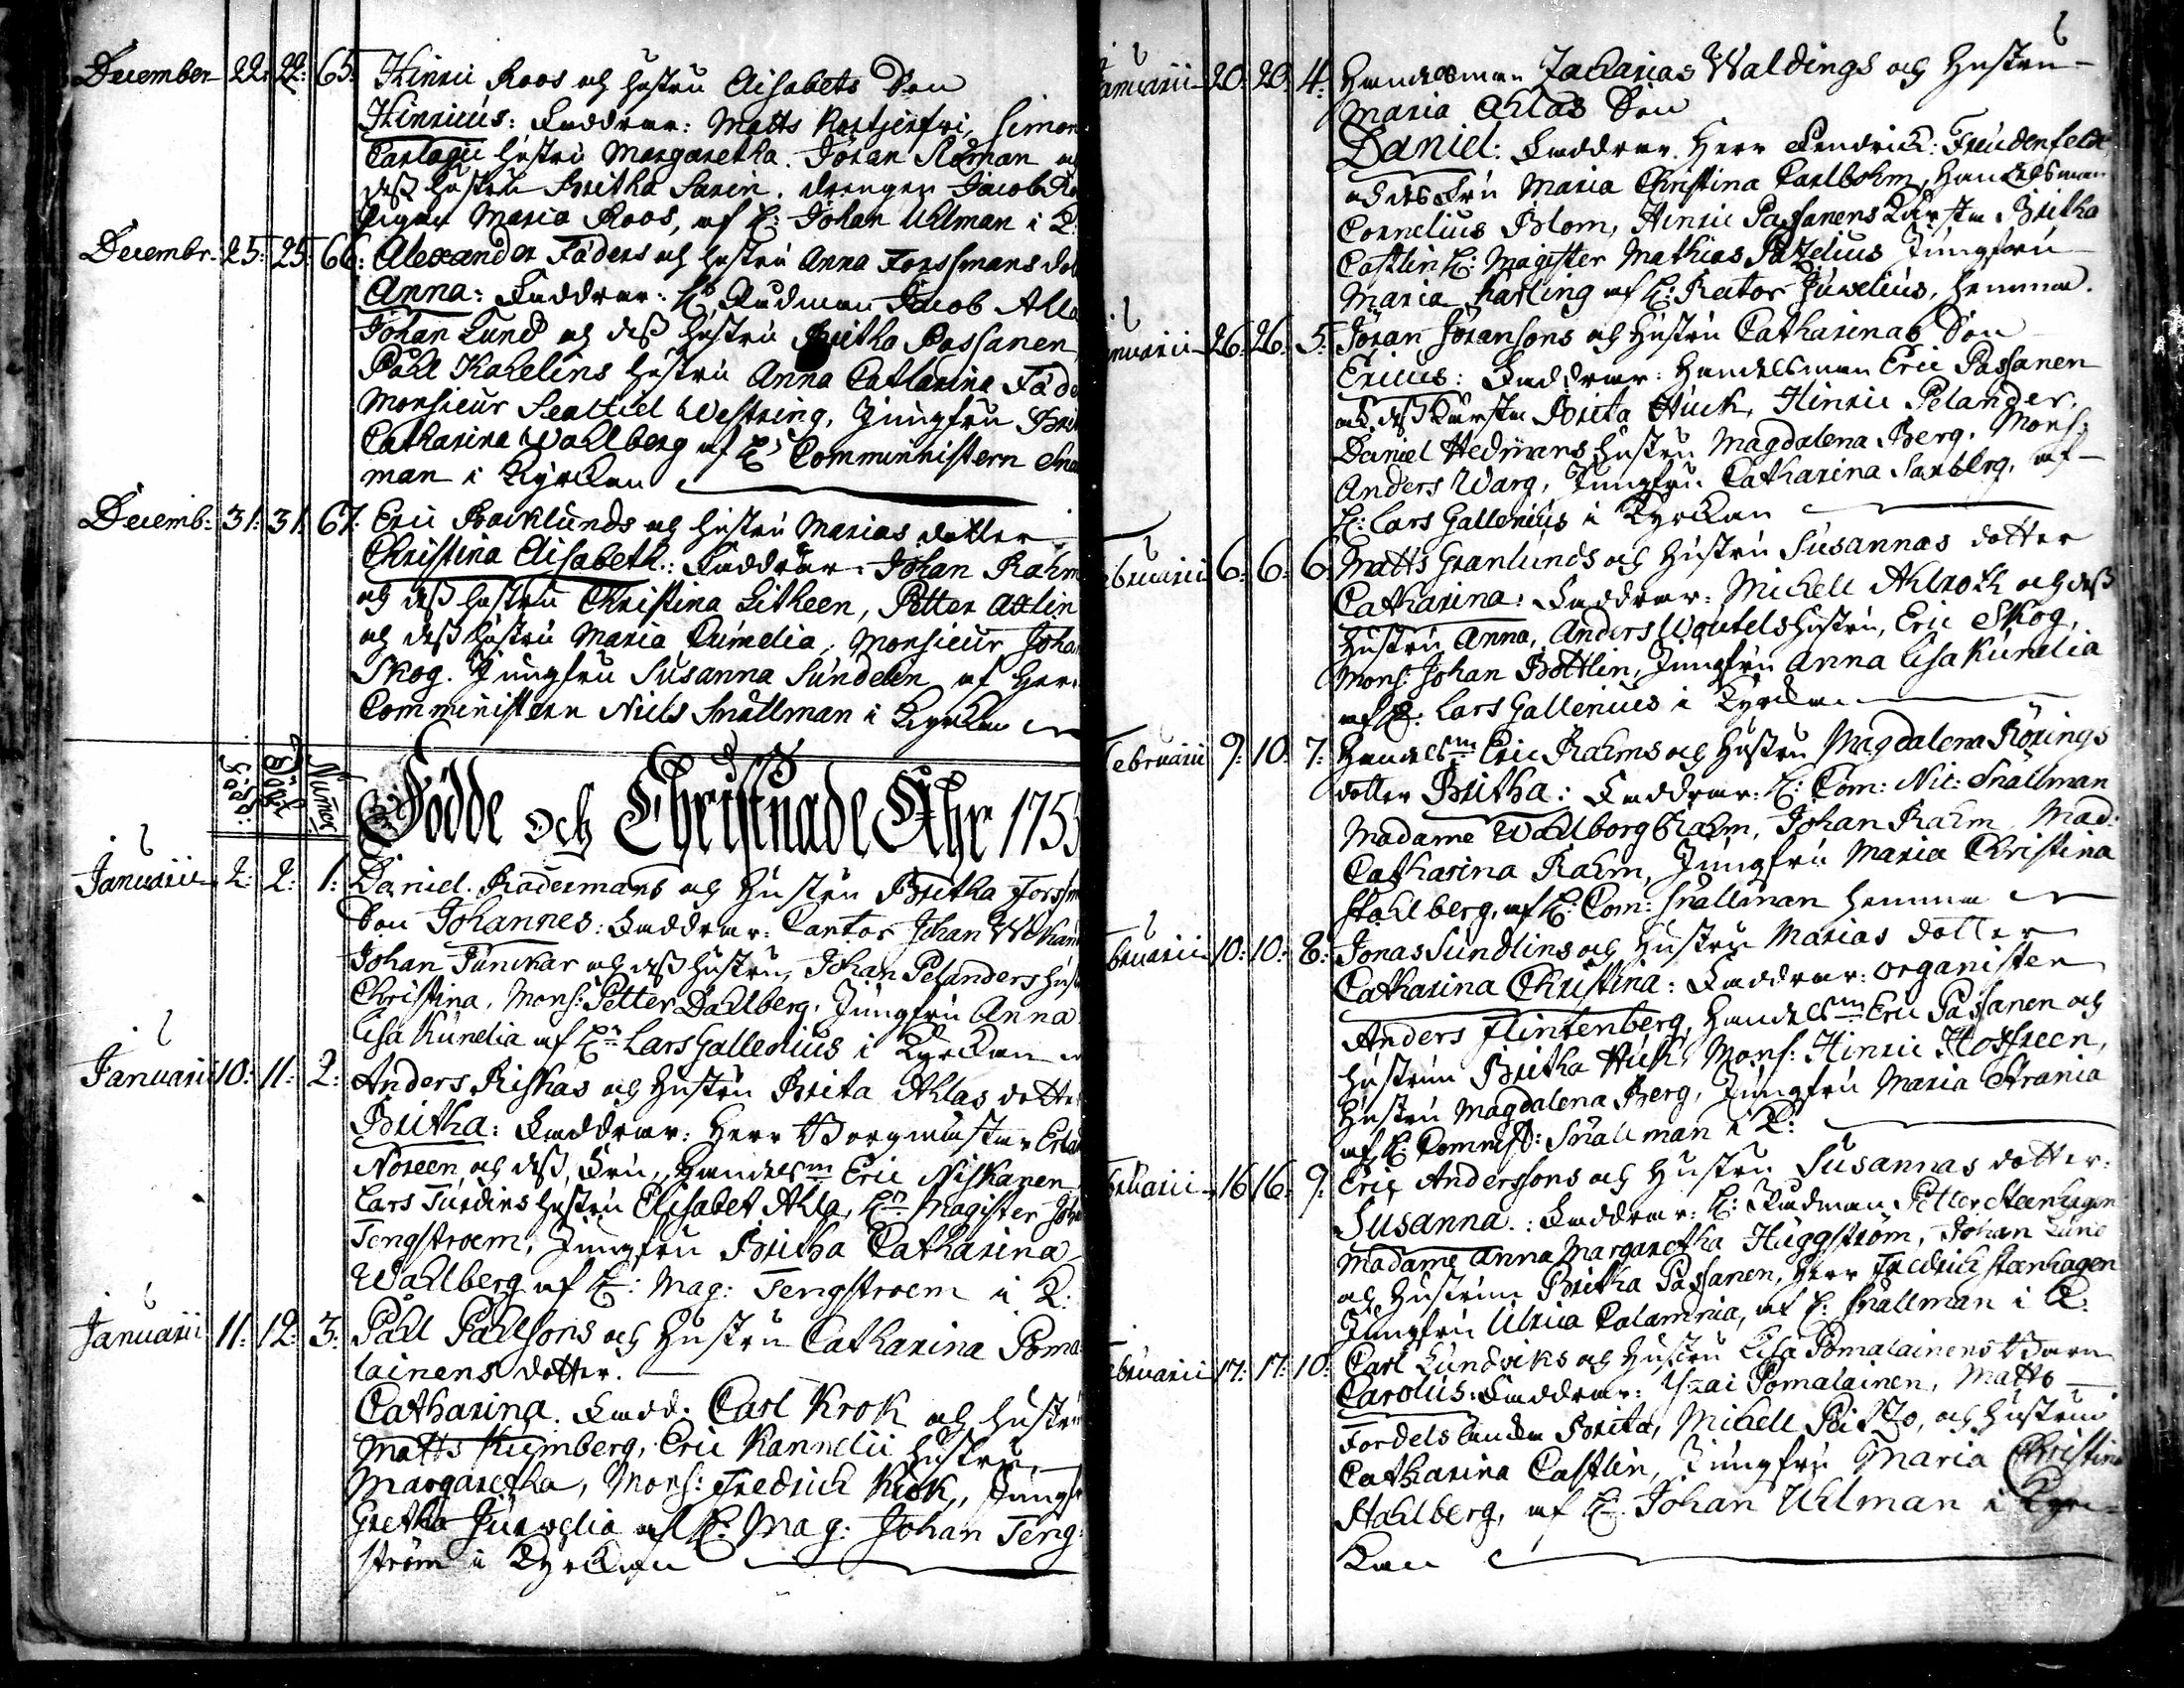 December 22: 22: 65: Hinric Roos och hustru Elisabets Son
Hinricus: Faddrar: Matts Simon
hustru Margaretha. Johan Roman
dess hustru Britha Sarin. drengen Jacob
pigan Maria Roos, af H: Johan Uhlman i K:
Decembr. 25: 25: 66: Alexander Fäders och hustru Anna Forssmans
Anna: Faddrar: Hr Rådman Jacob
Johan Lund och dess hustru Britha Passanen
Påhl Kahelins hustru Anna Catharina
Monsieur Sealtiel Westring, Jungfru
Catharina Wahlberg af Hr Comministern
man i Kyrckan
Decemb: 31: 31: 67: Eric Backlunds och hustru Marias dotter
Christina Elisabeth: Faddrar: Johan
och dess hustru Christina Litheen, Petter
och dess hustru Maria Cumelia, Monsieur
Skog. Jungfru Susanna Sundelin af Herr
Comministern Niels Snällman i Kyrckan
Född: Döpt Numer
Födde och Christnade Åhr 1755
Januarii 2: 2: 1: Daniel Radermans och Hustru Britha
Son Johannes: Faddrar: Cantor Johan
Johan Junckar och dess hustru, Johan Pelanders
Christina, Mons: Petter Dahlberg, Jungfru Anna
Lisa Kunelia af Hr Lars Gallenius i Kyrckan
Januarii 10: 11: 2: Anders Riskas och Hustru Brita Ahlas
Britha: Faddrar: Herr Borgmästar
Noreen och dess Fru, Handelsm Eric Niskanen
Lars Turdins hustru Elisabet Ahla, Hr Magister
Tengstroem, Jungfru Britha Catharina
Wahlberg af H: Mag: Tengstroem i K:
Januarii 11: 12: 3: Påhl Påhlsons och Hustru Catharina Poma
lainens dotter.
Catharina. Fadd. Carl Krok och hustru
Matts Kumberg, Eric Kannelii hustru
Margaretha, Mons: Fredrich Krok,
Gretha Juwelia af H: Mag: Johan Teng
ström i Kyrckan
Januarii 20: 20: 4: Handelsman Zacharias Waldings och Hustru
Maria Ahlas Son
Daniel: Faddrar. Herr Fendrick: Freudenfeldt
och dess Fru Maria Christina Carlbohm, Handelsman
Cornelius Blom, Hinric Passanens Britha
Castlin H: Magister Mathias Pazelius Jungfru
Maria Karling af H: Rector Juwelius, hemma.
26: 26: 5: Jöran Jöransons och Hustru Catharinas Son
Ericus: Faddrar: Handelsman Eric Passanen
och dess Brita Huck, Hinric Pelander,
Daniel Hedmans hustru Magdalena Berg. Mons:
Anders Warg, Jungfru Catharina Saxberg, af
H: Lars Gallenius i Kyrckan
6: 6: 6 Matts Granlunds och Hustru Susannas dotter
Catharina: Faddrar: Michell Ahlroth och dess
Hustru Anna, Anders hustru, Eric Skog,
Mons: Johan Bottlin, Jungfru Anna Lisa Kunelia
af H: Lars Gallenius i Kyrckan
Februarii 9: 10: 7: Handelsm Eric Rahms och Hustru Magdalena Rörings
dotter Britha: Faddrar: H: Com: Nic: Snällman
Madame Wahlborg Rahm, Johan Rahm, Mad:
Catharina Rahm, Jungfru Maria Christina
Stahlberg, af H: Com: Snällman hemma
10: 10: 8: Jonas Sundlins och Hustru Marias dotter
Catharina Christina: Faddrar: Organisten
Anders Flintenberg, Handelsm Eric Passanen och
hustrun Britha Huck, Mons: Hinric
Hustru Magdalena Berg, Jungfru Maria
af H: Snällman i K:
16 16: 9: Eric Anderssons och Hustru Susannas dotter:
Susanna: Faddrar: H: Rådman Petter Stenhagen
Madame Anna Margaretha Huggström, Johan Lund
och Hustrun Britha Passanen, Herr Fredrich Stenhagen
Jungfru Ulrica Calamnia, af H: Snällman i K:
17: 17: 10: Carl Lundviks och Hustru Lisa Pomalainens Barn
Carolus: Faddrar: Pomalainen, Matts
Brita, Michell och Hustrun
Catharina Castlin, Jungfru Maria Christina
Stahlberg, af H: Johan Uhlman i Kyrc
kan